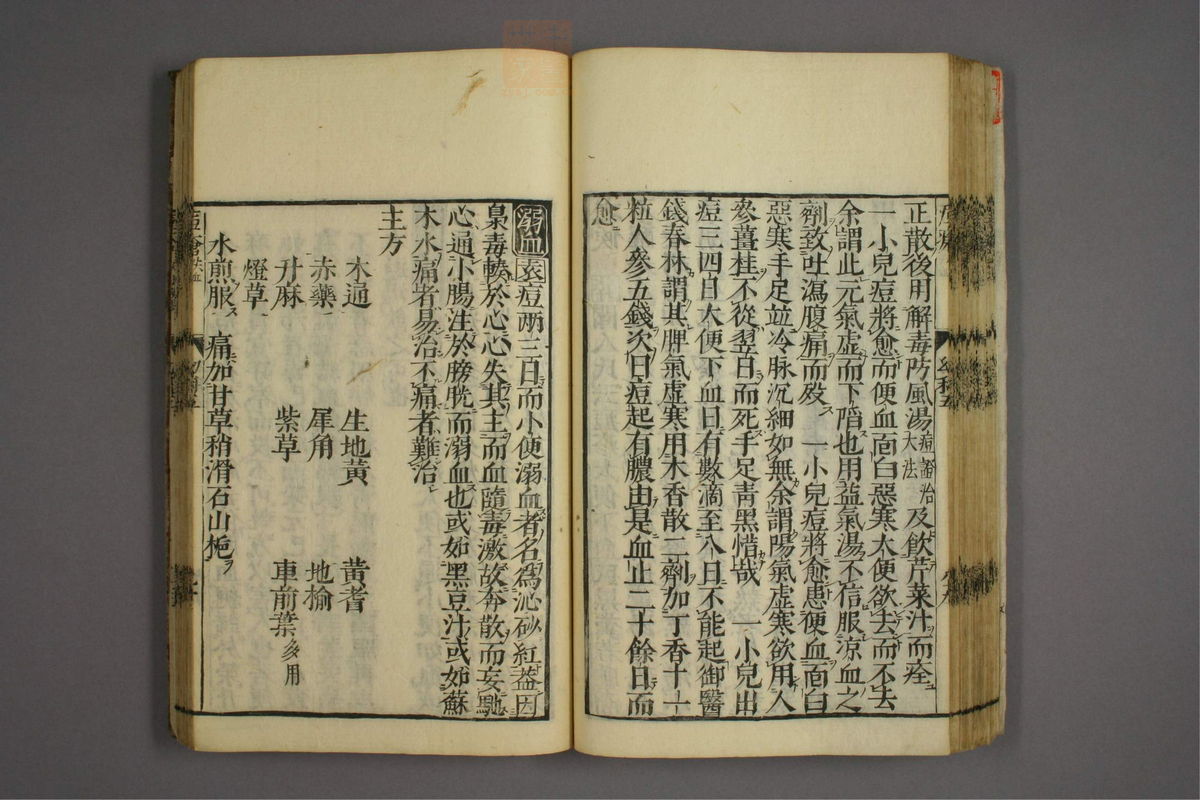 正散後用解毒防風湯痘證治大法及飲芹菜汁而痊
一小兒痘將愈而便血面白惡寒大便欲去而不去
余謂此元氣虛而下陷也用益氣湯不信服涼血之
劑致吐瀉腹痛而歿 一小兒痘將愈患便血面白
惡寒手足並冷脉沉細如無余謂陽氣虛寒欲用人
參薑桂不從翌日而死手足青黑惜哉 一小兒出
痘三四日大便下血日有數滴至八日不能起御醫
錢春林謂其脾氣虛寒用木香散二劑加丁香十一
粒人參五錢次日痘起有膿由是血止二十餘日而
愈
溺血 袁痘兩三日而小便溺血者名爲沁砂紅葢因
梟毒輳於心心失其主而血隨毒激故奔散而妄馳
心通小腸注於膀胱而溺血也或如黑豆汁或如蘇
木水痛者易治不痛者難治
主方
木通 生地黃 黃耆
赤藥 犀角 地榆
升麻 紫草 車前葉多用
燈草
水煎服 痛加甘草稍滑石山梔